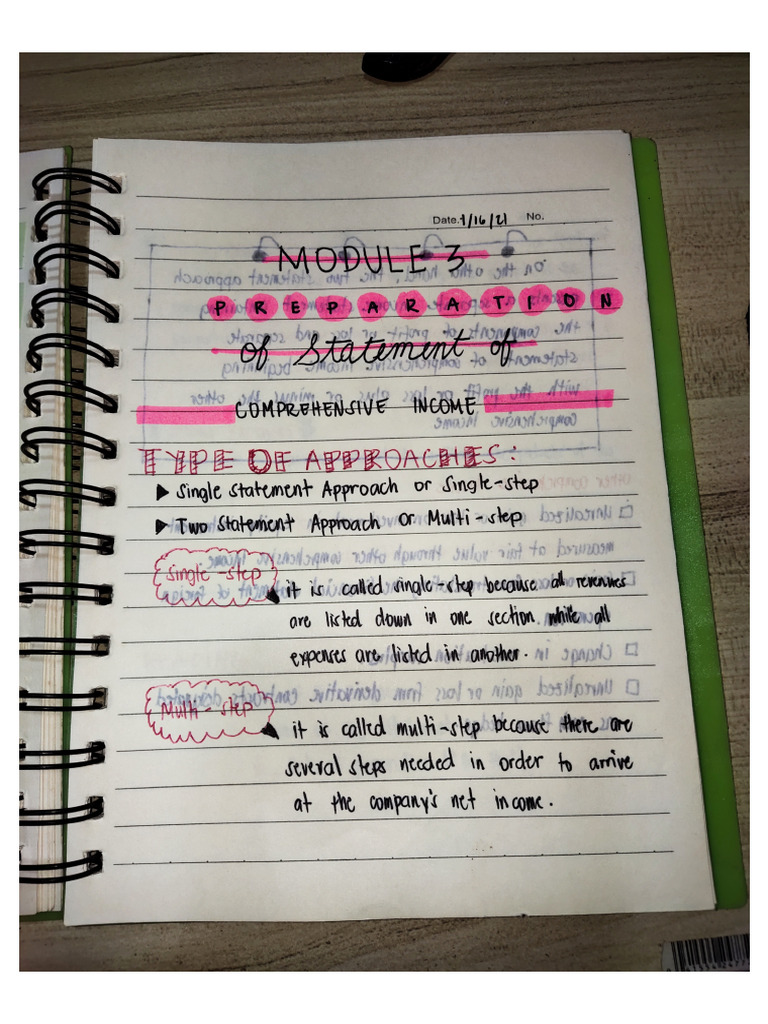 Date. 1/16/21 No.
MODULE 3
PREPARATION
Of Statement of
COMPREHENSIVE INCOME
TYPE OF APPROACHES:
▶ Single Statement Approach or Single-step
▶ Two Statement Approach or Multi-step
Single-step
it is called single-step because all revenues
are listed down in one section while all
expenses are listed in another.
Multi-step
it is called multi-step because there are
several steps needed in order to arrive
at the company's net income.